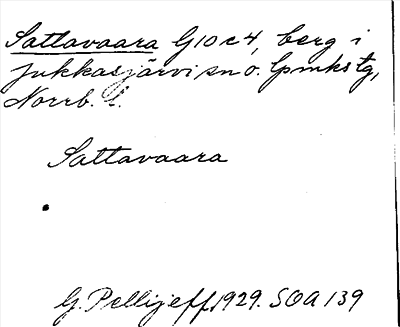 Sattavaara G10c4, berg i
Jukkasjärvi sn o. lpmkstg,
Norrb. l.
Sattavaara
G. Pellijeff 1929. SOA 139